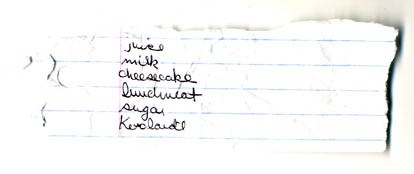 juice
milk
cheesecake
lunchmeat
sugar